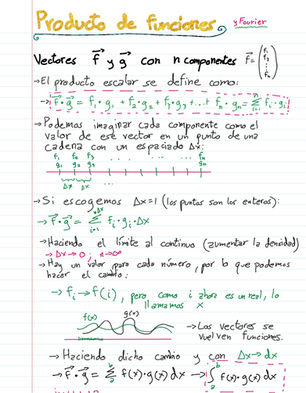 Producto de funciones y Fourier
Vectores f⃗ y g⃗ con n componentes f⃗ = (f₁ f₂ ⋮ fₙ)
→ El producto escalar se define como:
→ f⃗·g⃗ = f₁·g₁ + f₂·g₂ + f₃·g₃ + ...+ fₙ·gₙ = Σ fᵢ·gᵢ
→ Podemos imaginar cada componente como el
valor de est vector en un punto de una
cadena con un espaciado Δx:
f₁ f₂ f₃ ... fₙ
g₁ g₂ g₃ gₙ
Δx Δx
→ Si escogemos Δx=1 (los puntos son los enteros):
→ f⃗·g⃗ = Σ fᵢ·gᵢ·Δx
→ Haciendo el límite al continuo (aumentar la densidad)
→ Δx→0, n→∞
→ Hay un valor para cada número, por lo que podemos
hacer el cambio:
→ fᵢ → f(i), pero como i ahora es un real, lo
llamamos x
f(x) g(x)
→ Los vectores se
vuelven funciones.
→ Haciendo dicho cambio y con Δx→dx
→ f⃗·g⃗ = Σ f(x)·g(x) dx → ∫ f(x)·g(x) dx